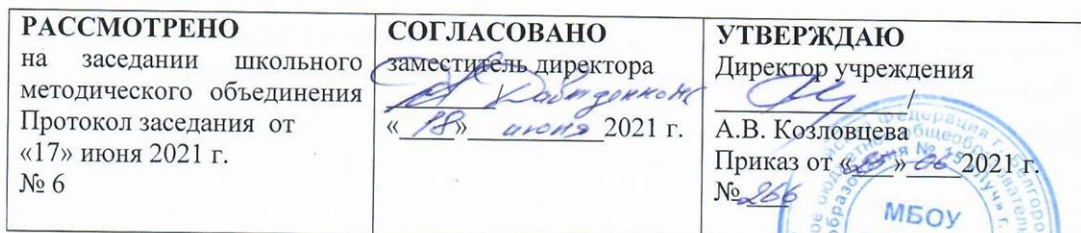 РАССМОТРЕНО
на заседании школьного
методического объединения
Протокол заседания от
«17» июня 2021 г.
№ 6
СОГЛАСОВАНО
заместитель директора
/
«18» июня 2021 г.
УТВЕРЖДАЮ
Директор учреждения
/
А.В. Козловцева
Приказ от «25» 06 2021 г.
№ 266
МБОУ